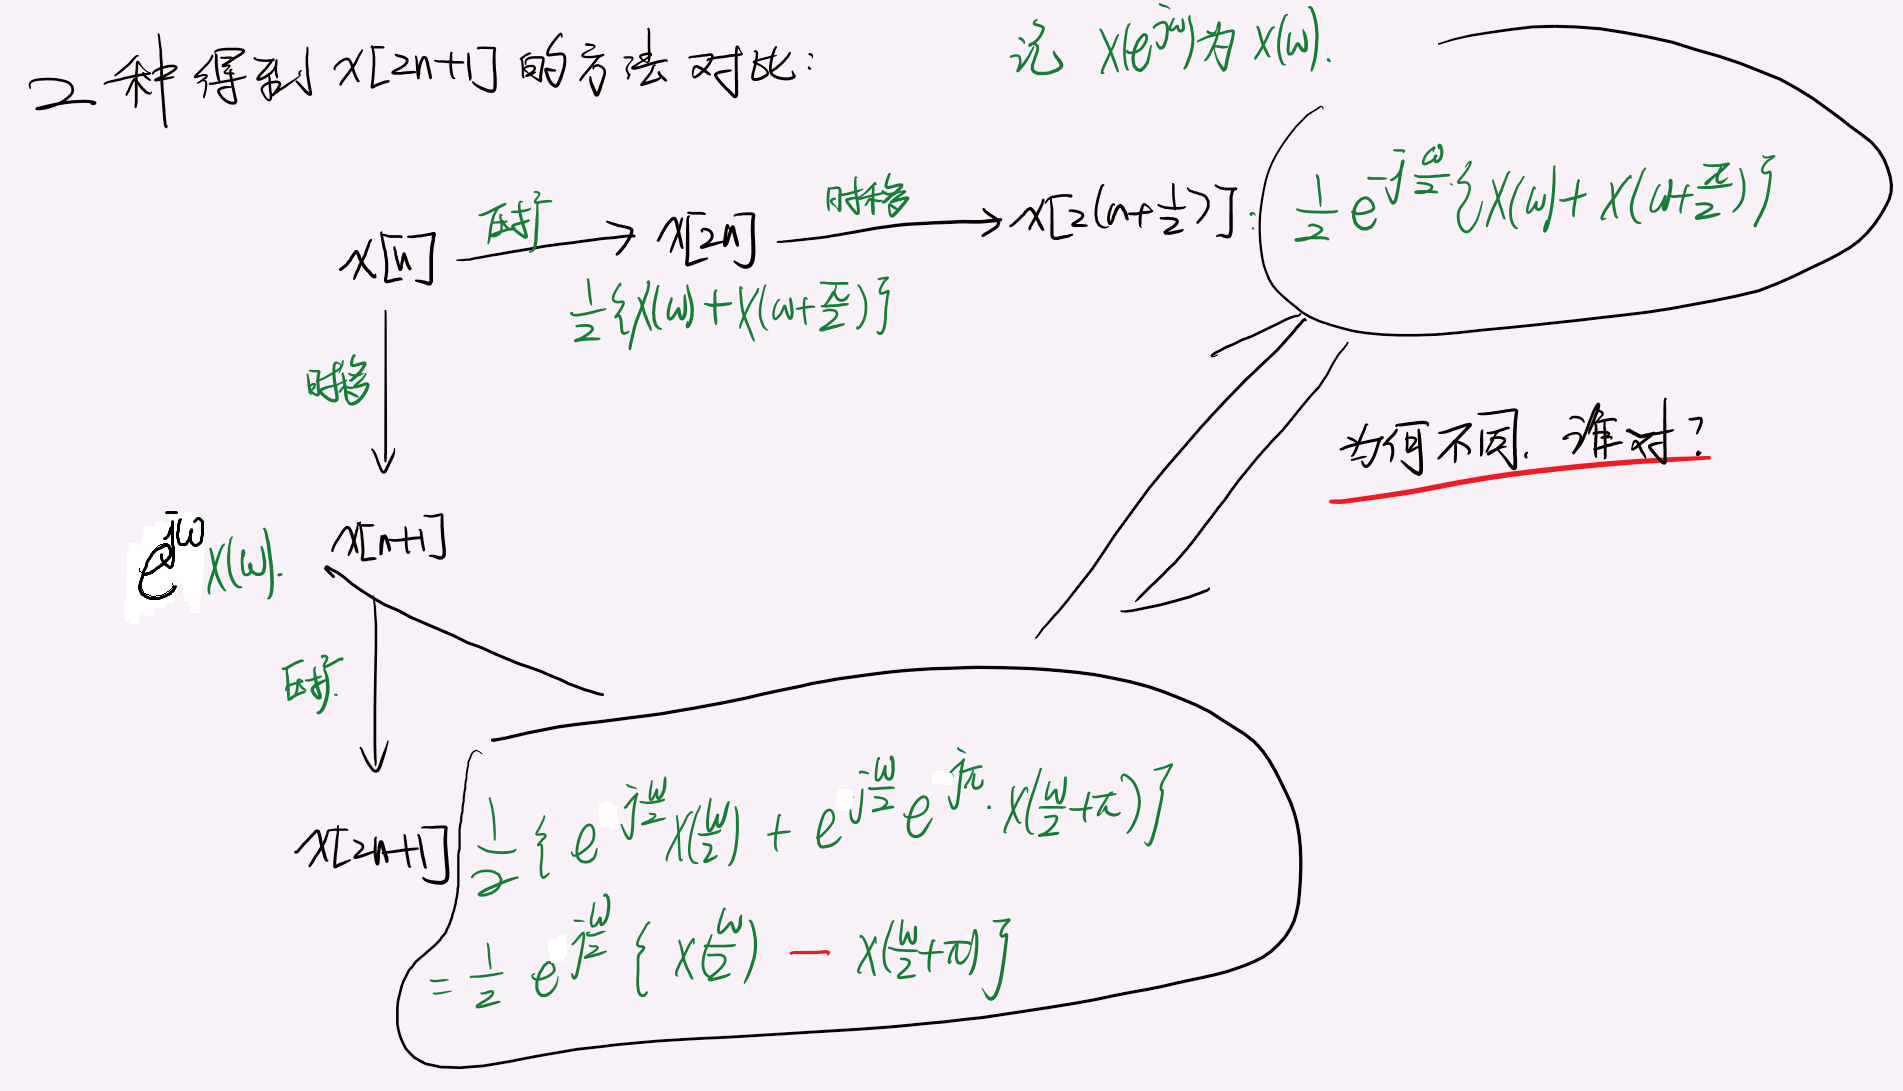 2种得到 x[2n+1] 的方法对比:
记 X(e^{jω})为 X(ω).
x[n] 压扩 x[2n] 时移 x[2(n+\frac{1}{2})]: \frac{1}{2} e^{-j\frac{ω}{2}}·{X(ω)+ X(ω+\frac{π}{2})}
\frac{1}{2}{X(ω)+X(ω+\frac{π}{2})}
时移
为何不同. 谁对?
e^{jω}X(ω). x[n+1]
压扩.
x[2n+1] \frac{1}{2} { e^{j\frac{ω}{2}}X(\frac{ω}{2}) + e^{j\frac{ω}{2}} e^{jπ}. X(\frac{ω}{2}+π)}
= \frac{1}{2} e^{j\frac{ω}{2}} { X(\frac{ω}{2}) — X(\frac{ω}{2}+π)}